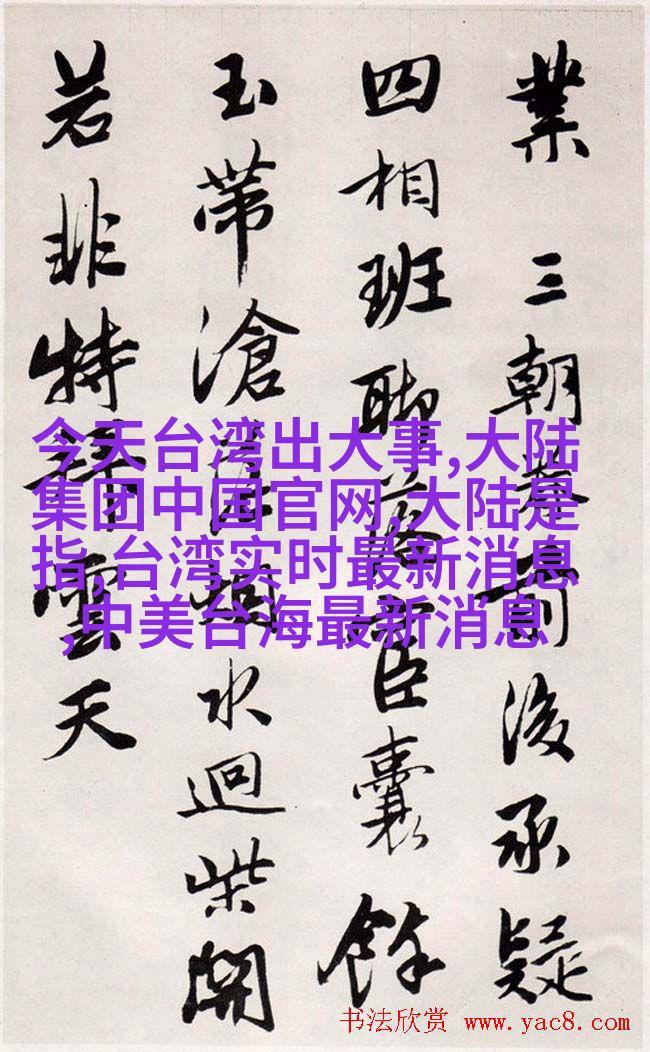 業三朝前後承疑
四相班聯囊餘
玉帶滄水迴柴開
若非特拜雲天
今天台湾出大事,大陆
集团中国官网,大陆是
指,台湾实时最新消息
,中美台海最新消息
书法欣赏 www.yac8.com